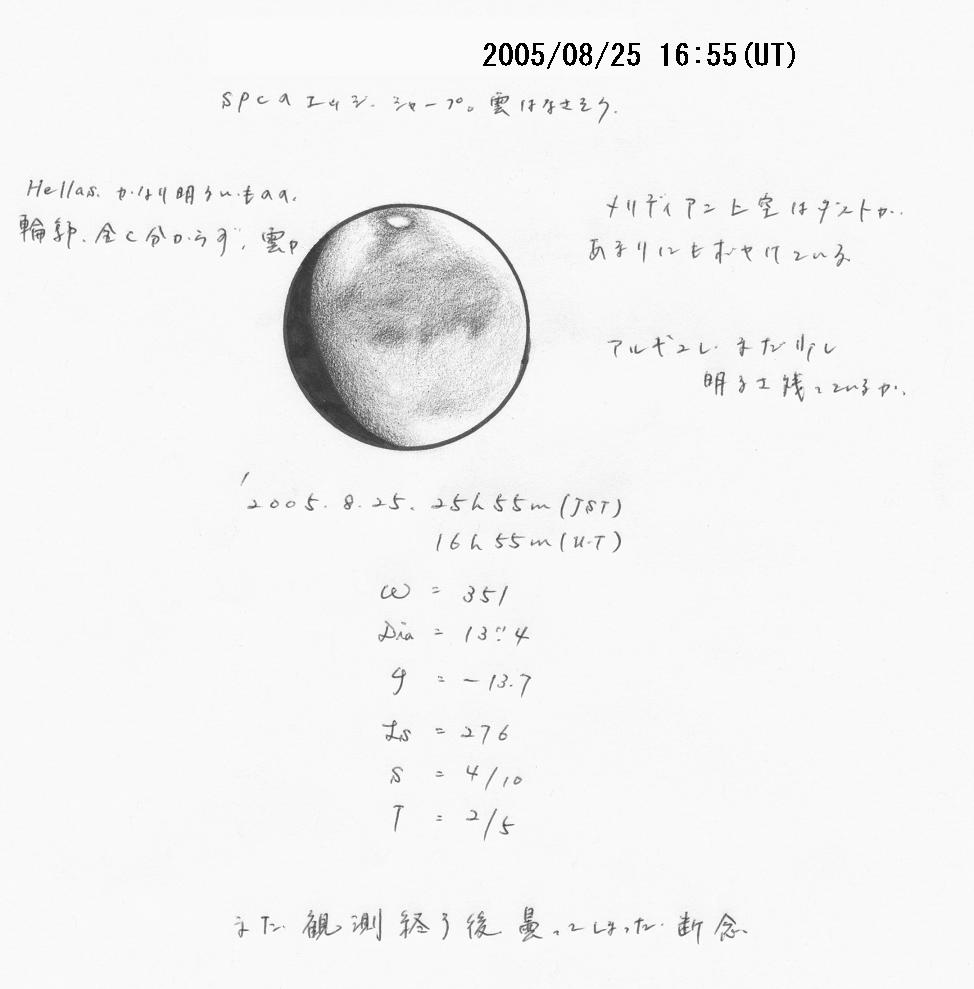 2005/08/25 16:55(UT)
SPCのエッジ、シャープ。雲はなさそう。
Hellas、かなり明るいものの、
輪郭、全く分からず、雲か
メリディアン上空はダストか、
あまりにもぼやけている。
アルギュレ、まだ少し
明るさ残っているか、
'2005.8.25. 25h55m(JST)
16h55m(U.T)
ω = 351
Dia = 13".4
φ = -13.7
Ls = 276
S = 4/10
T = 2/5
また観測終了後曇ってしまった、断念、